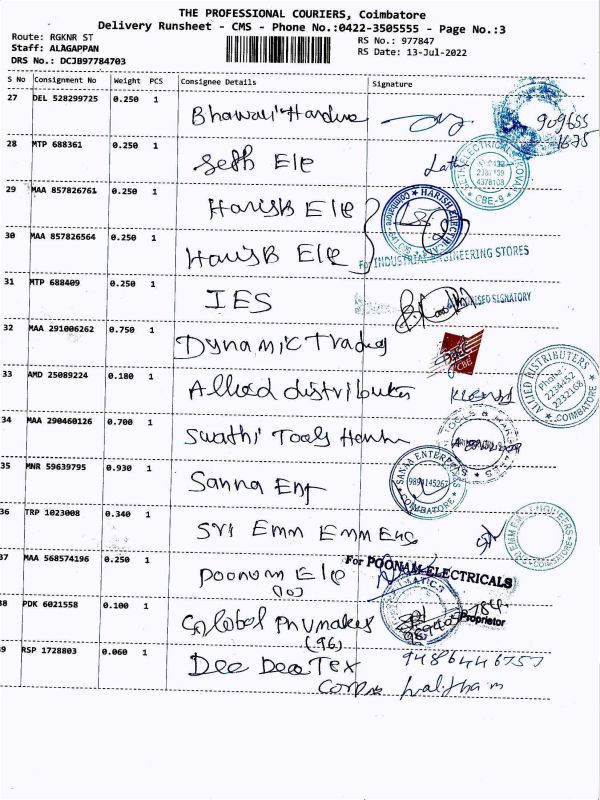 THE PROFESSIONAL COURIERS, Coimbatore
Delivery Runsheet - CMS - Phone No.:0422-3505555 - Page No.:3
Route: RGKNR ST
RS No.: 977847
Staff: ALAGAPPAN
RS Date: 13-Jul-2022
DRS No.: DCJB97784703
S No Consignment No Weight PCS Consignee Details Signature
27 DEL 528299725 0.250 1
28 MTP 688361 0.250 1 Seth Ele
29 MAA 857826761 0.250 1 Harish Ele
HARISH ELECTRICAL
30 MAA 857826564 0.250 1 Harish Ele
For INDUSTRIAL ENGINEERING STORES
31 MTP 688409 0.250 1 IES
AUTHORISED SIGNATORY
32 MAA 291006262 0.750 1 Dynamic Trades
CBE
33 AMD 25089224 0.180 1 Allied distributer
ALLIED DISTRIBUTERS
Phone
2234452
2232168
COIMBATORE
34 MAA 290460126 0.700 1 Swathi Tools
35 MNR 59639795 0.930 1 Sanna Ent
SANAA ENTERPRISES
9894145267
COIMBATORE
36 TRP 1023008 0.340 1 Sri Emm Emm Eng
37 MAA 568574196 0.250 1 Poonam Ele
(10)
For POONAM ELECTRICALS
Proprietor
38 PDK 6021558 0.100 1 Global Pnumakes
(96)
39 RSP 1728803 0.060 1 Dee Dee Tex
9486446757